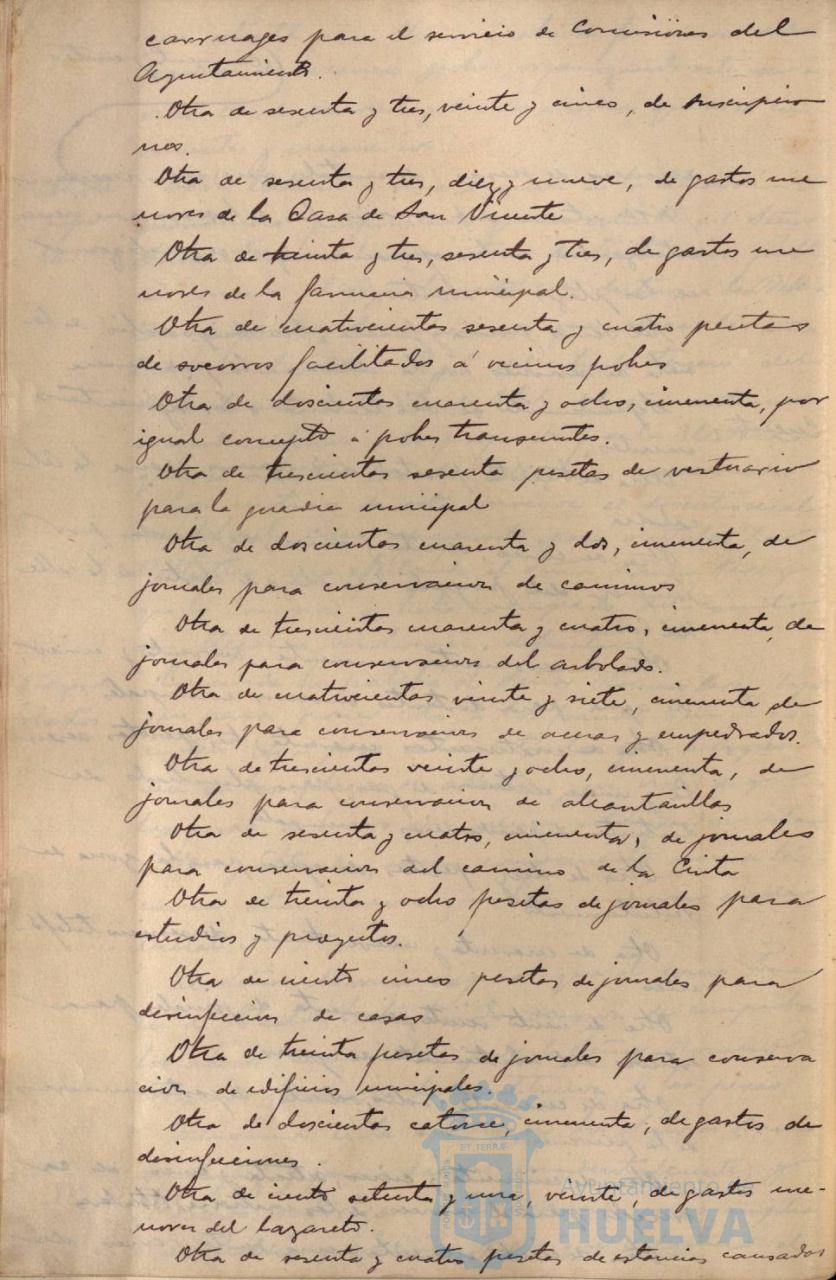 carruages para el servicio de Comisiones del
Ayuntamiento.
Otra de sesenta y tres, veinte y cinco, de suscripcio
nes.
Otra de sesenta y tres, diez y nueve, de gastos me
nores de la Casa de San Vicente
Otra de treinta y tres, sesenta y tres, de gastos me
nores de la farmacia municipal.
Otra de cuatrocientas sesenta y cuatro pesetas
de socorros facilitados á vecinos pobres
Otra de doscientas cuarenta y ocho, cincuenta, por
igual concepto á pobres transeuntes.
Otra de trescientas sesenta pesetas de vestuario
para la guardia municipal
Otra de doscientas cuarenta y dos, cincuenta, de
jornales para conservacion de caminos
Otra de trescientas cuarenta y cuatro, cincuenta, de
jornales para conservacion del arbolado.
Otra de cuatrocientas veinte y siete, cincuenta, de
jornales para conservacion de aceras y empedrados.
Otra de trescientas veinte y ocho, cincuenta, de
jornales para conservacion de alcantarillas
Otra de sesenta y cuatro, cincuenta, de jornales
para conservacion del camino de la Cinta
Otra de treinta y ocho pesetas de jornales para
estudios y proyectos.
Otra de ciento cinco pesetas de jornales para
desinfeccion de casas
Otra de treinta pesetas de jornales para conserva
cion de edificios municipales.
Otra de doscientas catorce, cincuenta, de gastos de
desinfecciones.
Otra de ciento setenta y una, veinte, de gastos me-
nores del lazareto.
Otra de sesenta y cuatro pesetas de estancias causadas
Ayuntamiento de
HUELVA